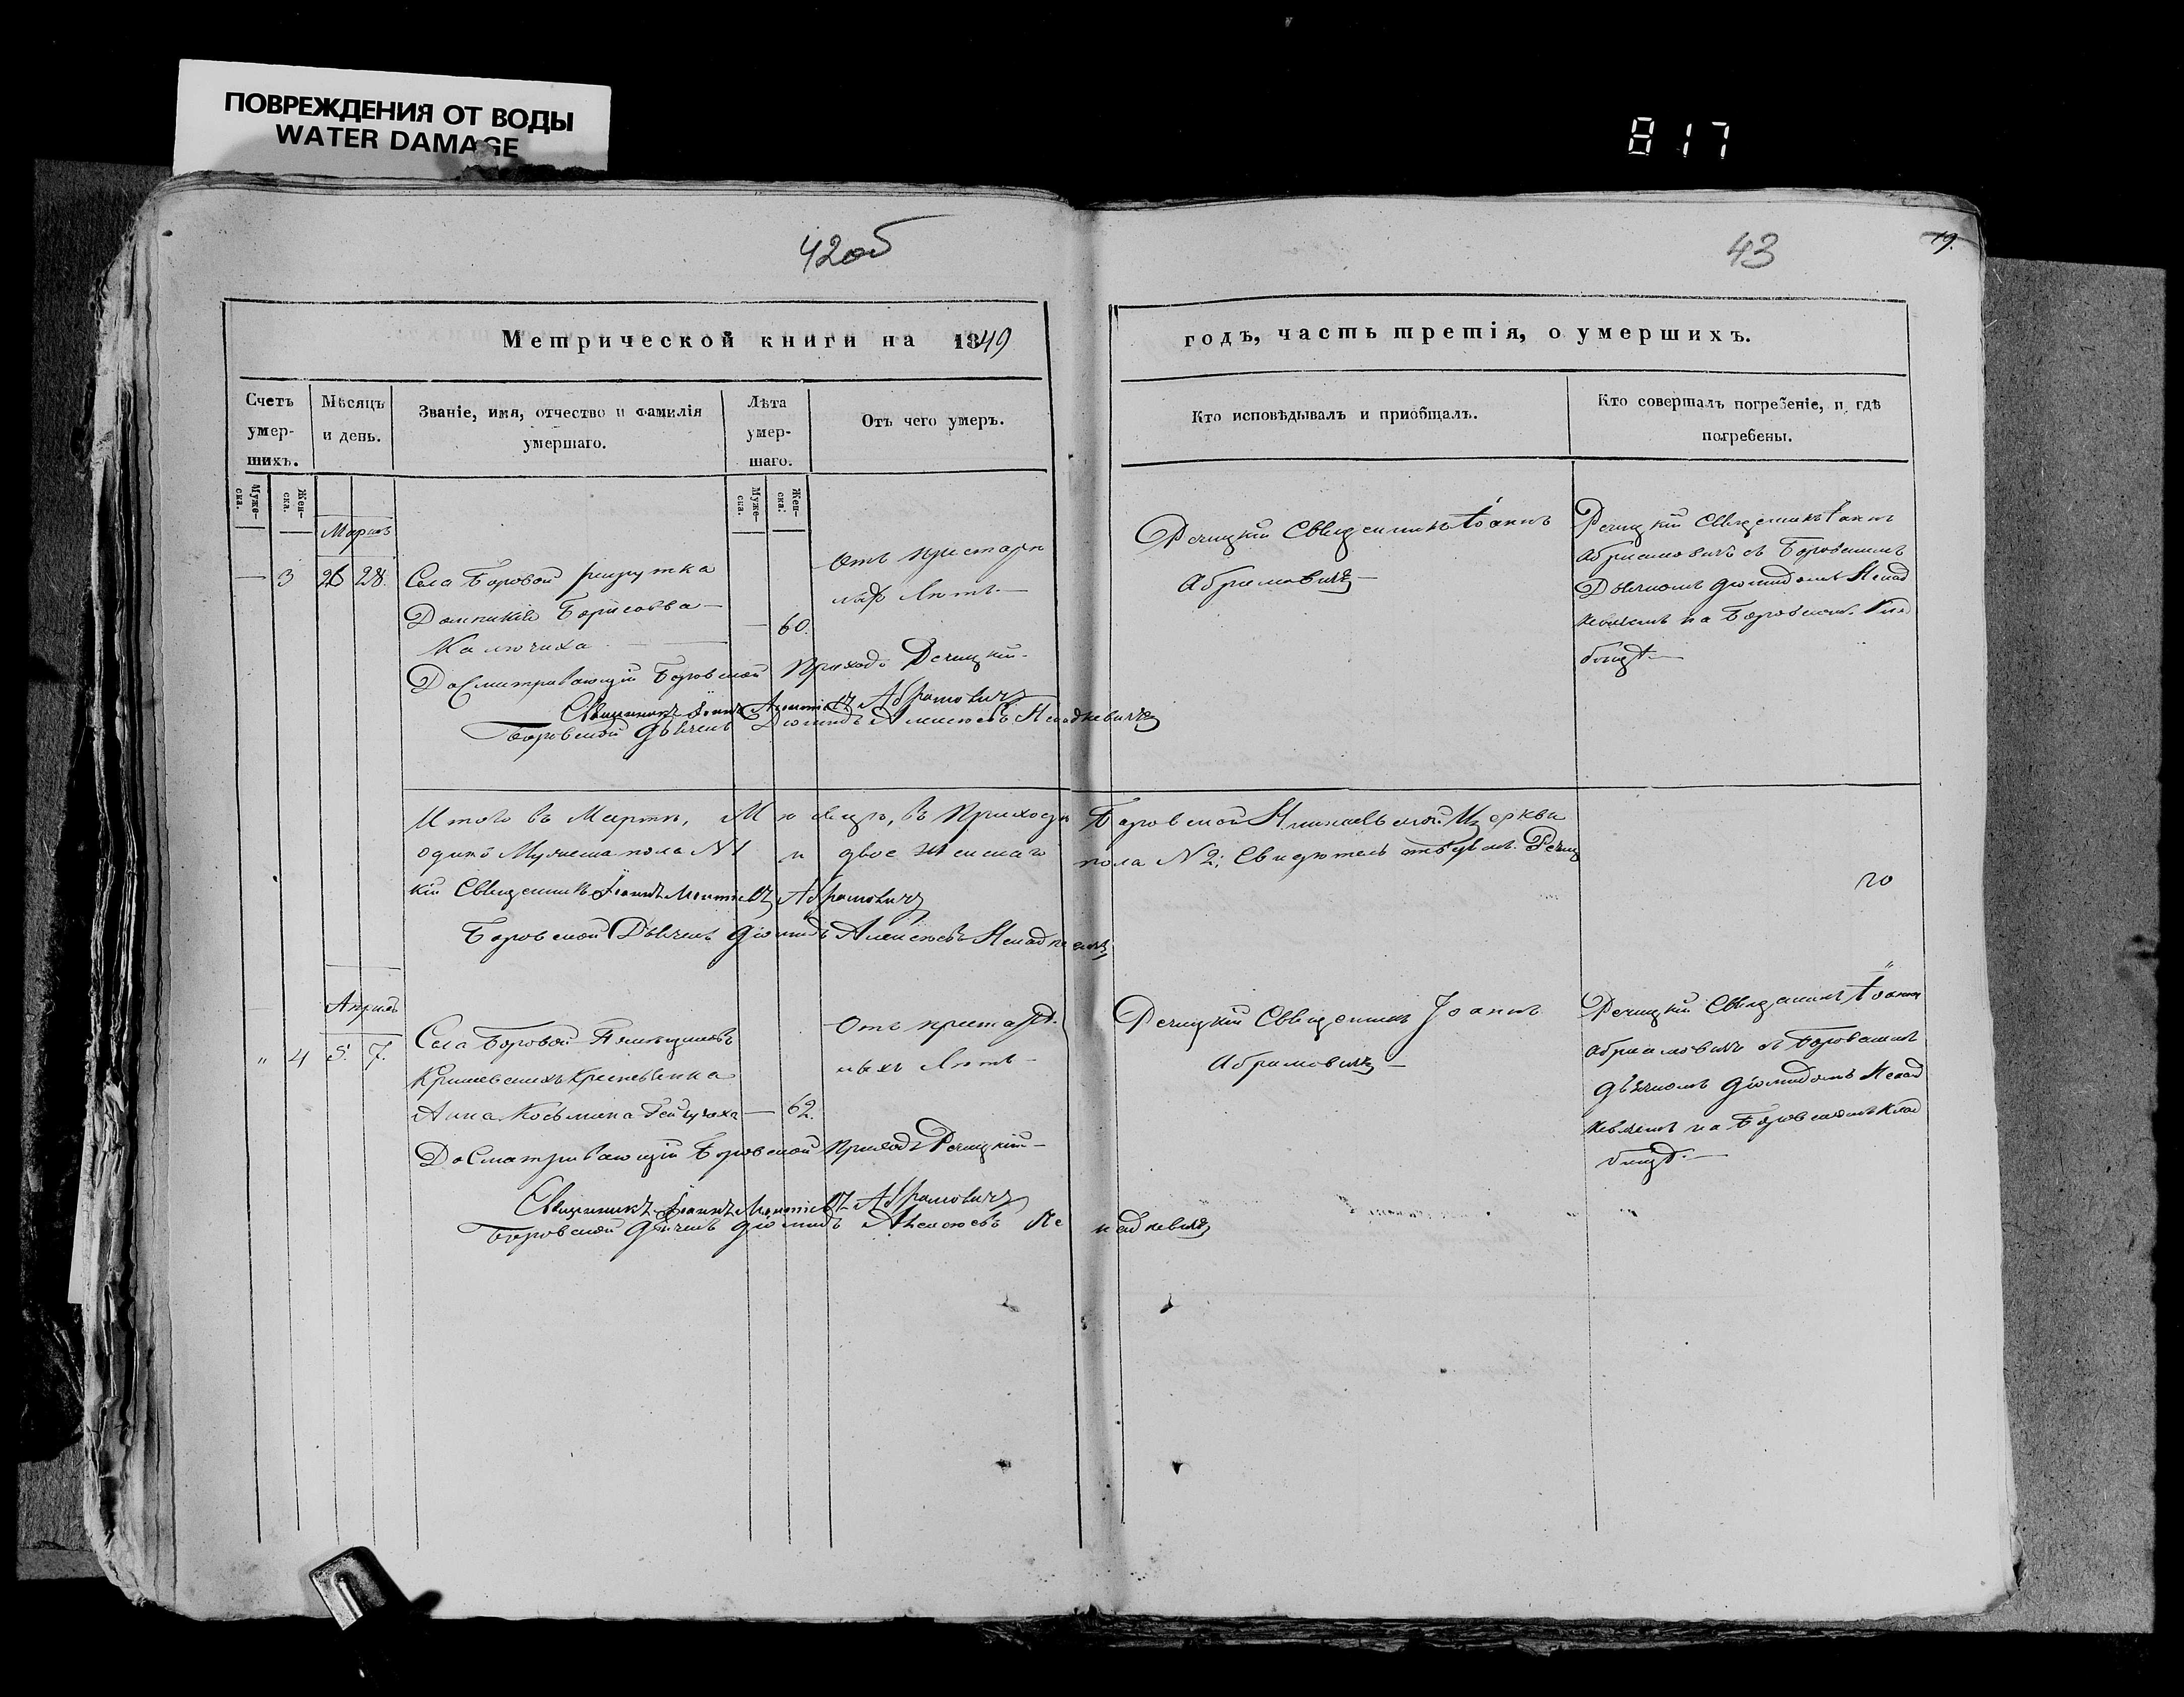 ПОВРЕЖДЕНИЯ ОТ ВОДЫ
WATER DAMAGE
817
42об
43
19.
Метрической книги на 1849
годъ, часть третія, о умершихъ.
Счетъ умер-шихъ.
Мѣсяцъ и день.
Званіе, имя, отчество и фамилія умершаго.
Лѣта умер-шаго.
Отъ чего умеръ.
Кто исповѣдывалъ и пріобщалъ.
Кто совершалъ погребеніе, и гдѣ погребены.
Муже-ска.
Жен-ска.
Муже-ска.
Жен-ска.
Мартъ
3 26 28.
Села Боровой рекрутка
Домникія Борисова
Калючиха
60.
Отъ престарѣ
лыхъ лѣтъ
Речицкій Священникъ Іоаннъ
Абрамовичъ
Речицкій Священникъ Іоаннъ
Абрамовичъ съ Боровскимъ
Дьячкомъ Діомидомъ
на Боровскомъ Клад
бищѣ
Досматривающій Боровской Приходъ Речицкій
Священникъ Іоаннъ Абрамовичъ
Боровской Дьячекъ Діомидъ Алексѣевъ
Итого въ Мартѣ, Мѣсяцѣ, въ Приходѣ Боровской Николаевской Церкви
одинъ Мужеска пола №1 и двое женскаго пола №2; Речиц
кій Священникъ Іоаннъ Абрамовичъ
20
Боровской Дьячекъ Діомидъ Алексѣевъ
Апрѣль
" 4 5. 7.
Села Боровой Помѣщиковъ
Крестьянка
Анна Косьмина
62.
Отъ престарѣ
лыхъ лѣтъ
Речицкій Священникъ Іоаннъ
Абрамовичъ
Речицкій Священникъ Іоаннъ
Абрамовичъ съ Боровскимъ
Дьячкомъ Діомидомъ
на Боровскомъ Клад
бищѣ
Досматривающій Боровской Приходъ Речицкій
Священникъ Іоаннъ Абрамовичъ
Боровской Дьячекъ Діомидъ Алексѣевъ